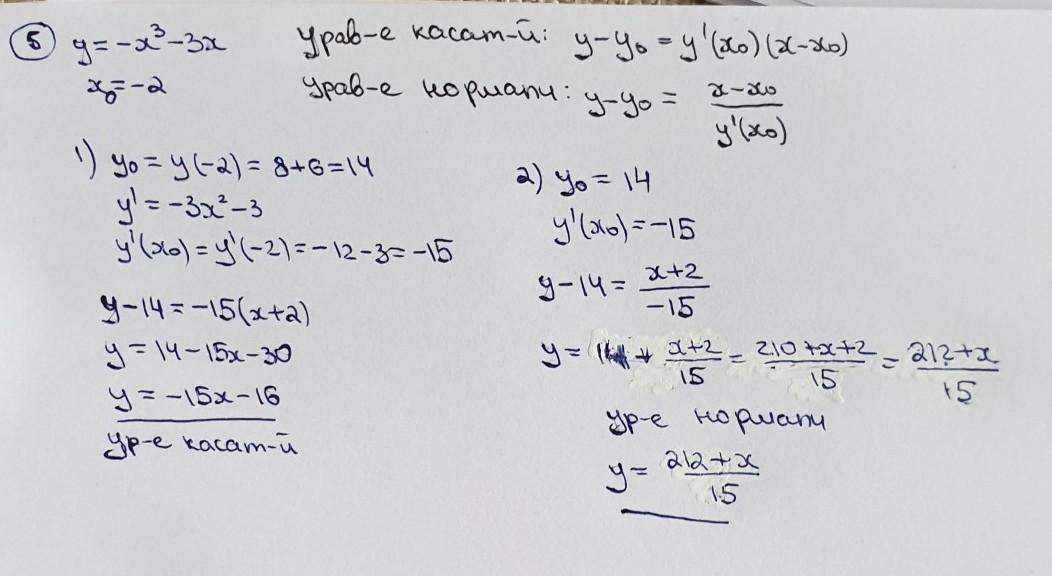 5 y = -x³ - 3x Урав-е касат-й: y - y₀ = y'(x₀)(x - x₀)
x₀ = -2 Урав-е нормали: y - y₀ = (x - x₀)/(y'(x₀))
1) y₀ = y(-2) = 8 + 6 = 14
y' = -3x² - 3
y'(x₀) = y'(-2) = -12 - 3 = -15
y - 14 = -15(x + 2)
y = 14 - 15x - 30
y = -15x - 16
ур-е касат-й
2) y₀ = 14
y'(x₀) = -15
y - 14 = (x + 2)/(-15)
y = 14 + (x + 2)/15 = (210 + x + 2)/15 = (212 + x)/15
ур-е нормали
y = (212 + x)/15